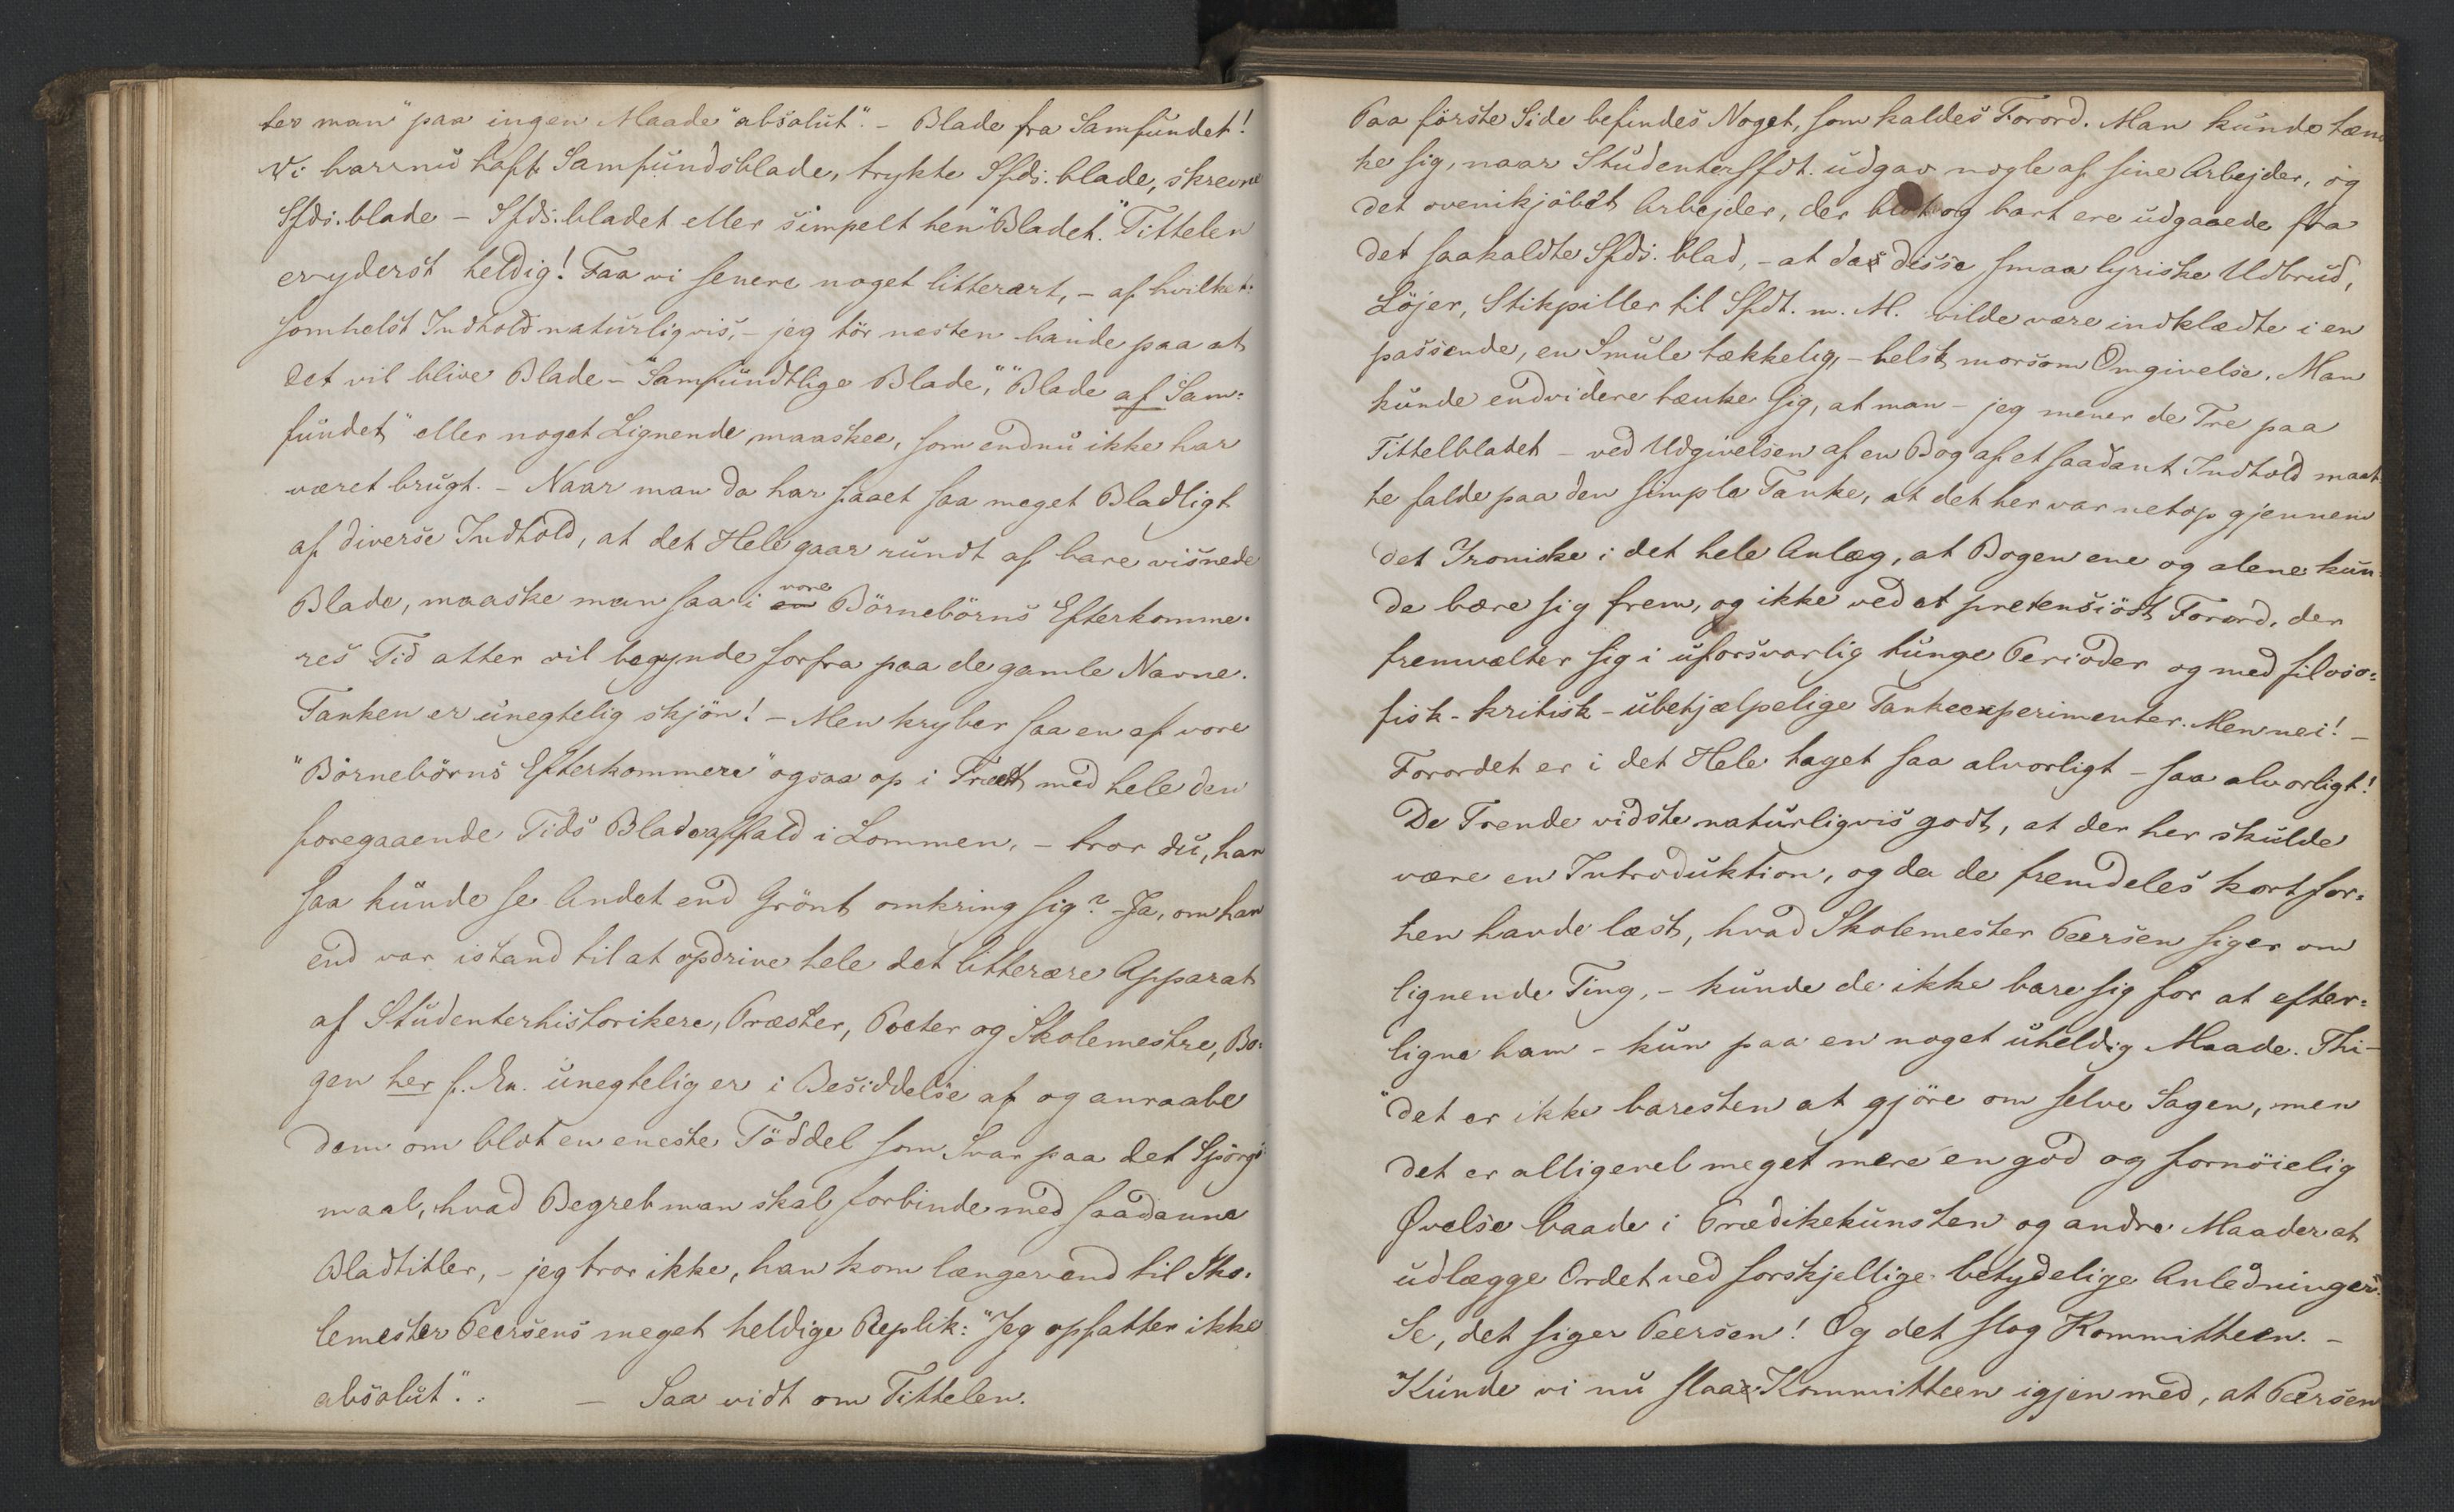 ter man" paa ingen Maade "absolut". – Blade fra Samfundet!
Vi har nu haft Samfundsblade, trykte Sfds. blade, skrevne
Sfds. blade – Sfds. bladet eller simpelt hen "Bladet." Tittelen
er yderst heldig! Faa vi senere noget litterært, – af hvilket-
somhelst Indhold naturligvis, – jeg tör næsten bande paa at
det vil blive Blade – "Samfundtlige Blade", "Blade af Sam-
fundet" eller noget Lignende maaskee, som endnu ikke har
været brugt. – Naar man da har faaet saa meget Bladligt
af diverse Indhold, at det Hele gaar rundt af bare visnede
Blade, maaske man saa i vore Börnebörns Efterkomme-
res Tid atter vil begynde forfra paa de gamle Navne.
Tanken er unegtelig skjön! – Men kryber saa en af vore
"Börnebörns Efterkommere" ogsaa op i Træet med hele den
foregaaende Tids Bladeaffald i Lommen, – tror du, han
saa kunde se Andet end Grönt omkring sig? – Ja, om han
end var istand til at opdrive hele det litterære Apparat
af Studenterhistorikere, Præster, Poeter og Skolemestre, Bo-
gen her f. Ex. unegtelig er i Besiddelse af og anraabe
dem om blot en eneste Töddel som Svar paa det Spörgs-
maal, hvad Begreb man skal forbinde med saadanne
Bladtitler, – jeg tror ikke, han kom længer end til Sko-
lemester Peersens meget heldige Replik: "Jeg opfatter ikke
absolut". – Saa vidt om Tittelen.
Paa förste Side befindes Noget, som kaldes Forord. Man kunde tæn-
ke sig, naar Studentersfdt. udgav nogle af sine Arbejder, og
det ovenikjöbet Arbejder, der blot og bart ere udgaaede fra
det saakaldte Sfds. blad, – at da disse smaa lyriske Udbrud,
Löjer, Stikpiller til Sfdt. m. M. vilde være indklædte i en
passende, en Smule tækkelig, – helst morsom Omgivelse. Man
kunde endvidere tænke sig, at man – jeg mener de Tre paa
Tittelbladet – ved Udgivelsen af en Bog af et saadant Indhold maat-
te falde paa den simple Tanke, at det her var netop gjennem
det Ironiske i det hele Anlæg, at Bogen ene og alene kun-
de bære sig frem, og ikke ved et pretensiöst Forord, der
fremvælter sig i uforsvarlig tunge Perioder og med filoso-
fisk-kritisk-ubehjælpelige Tankeexperimenter. Men nei! –
Forordet er i det Hele taget saa alvorligt – saa alvorligt!
De Trende vidste naturligvis godt, at der her skulde
være en Introduktion, og da de fremdeles kort for-
hen havde læst, hvad Skolemester Peersen siger om
lignende Ting, – kunde de ikke bare sig for at efter-
ligne ham – kun paa en noget uheldig Maade. Thi –
"det er ikke baresten at gjöre om selve Sagen, men
det er alligevel meget mere en god og fornöielig
Øvelse baade i Prædikekunsten og andre Maader at
udlægge Ordet ved forskjellige betydelige Anledninger".
Se, det siger Peersen! Og det slog Kommitteen. –
Kunde vi nu slaa Kommitteen igjen med, at Peersen